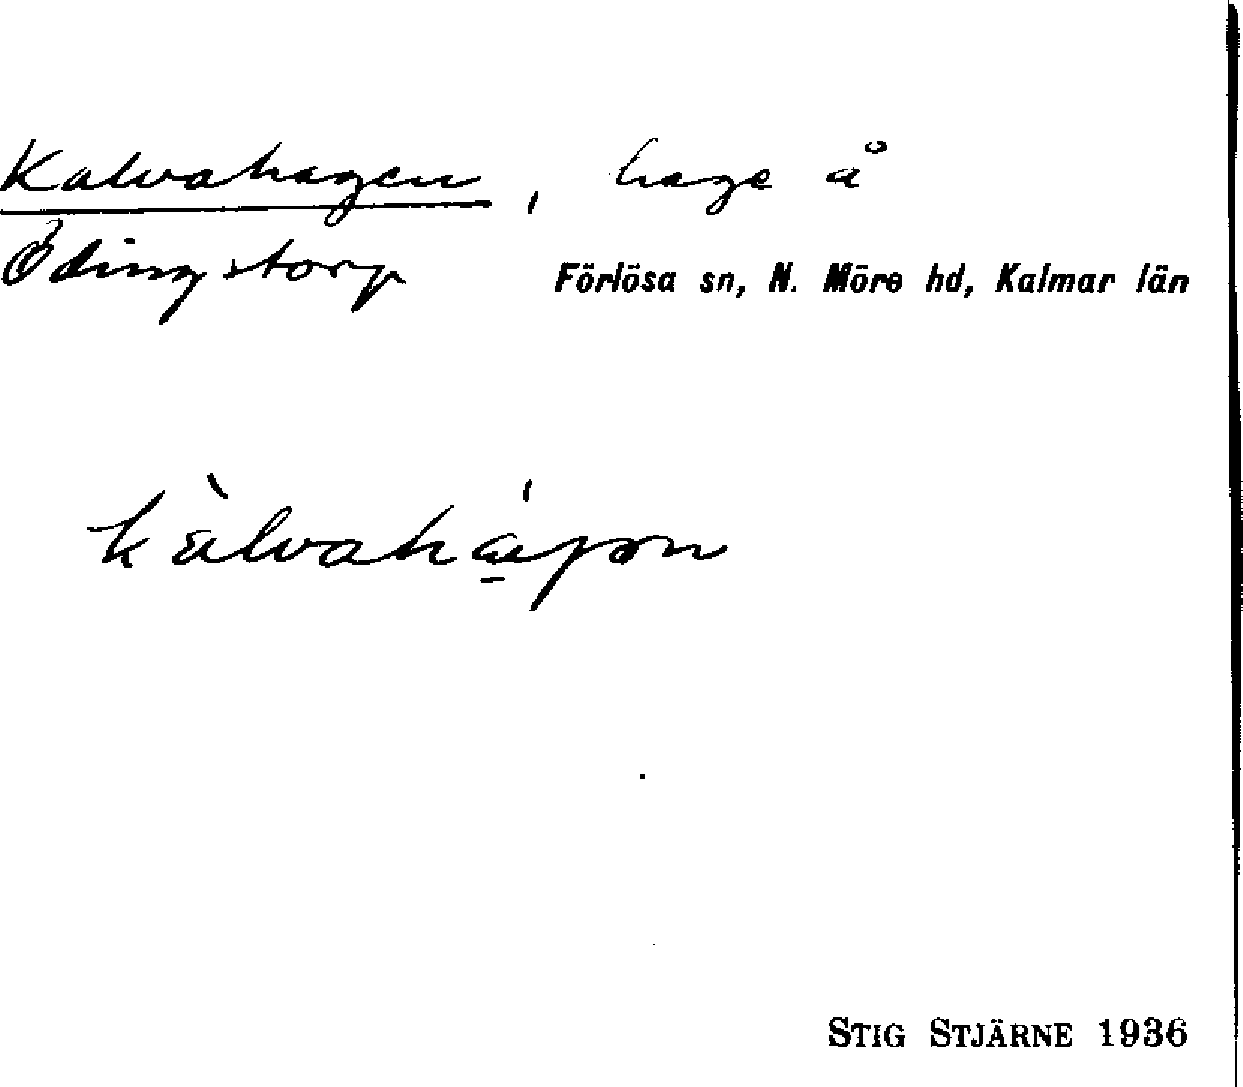 Kalvahagen, hage å
Ödingstorp Förlösa sn, N. Möre hd, Kalmar län
kàlvahá̱γən
STIG STJÄRNE 1936